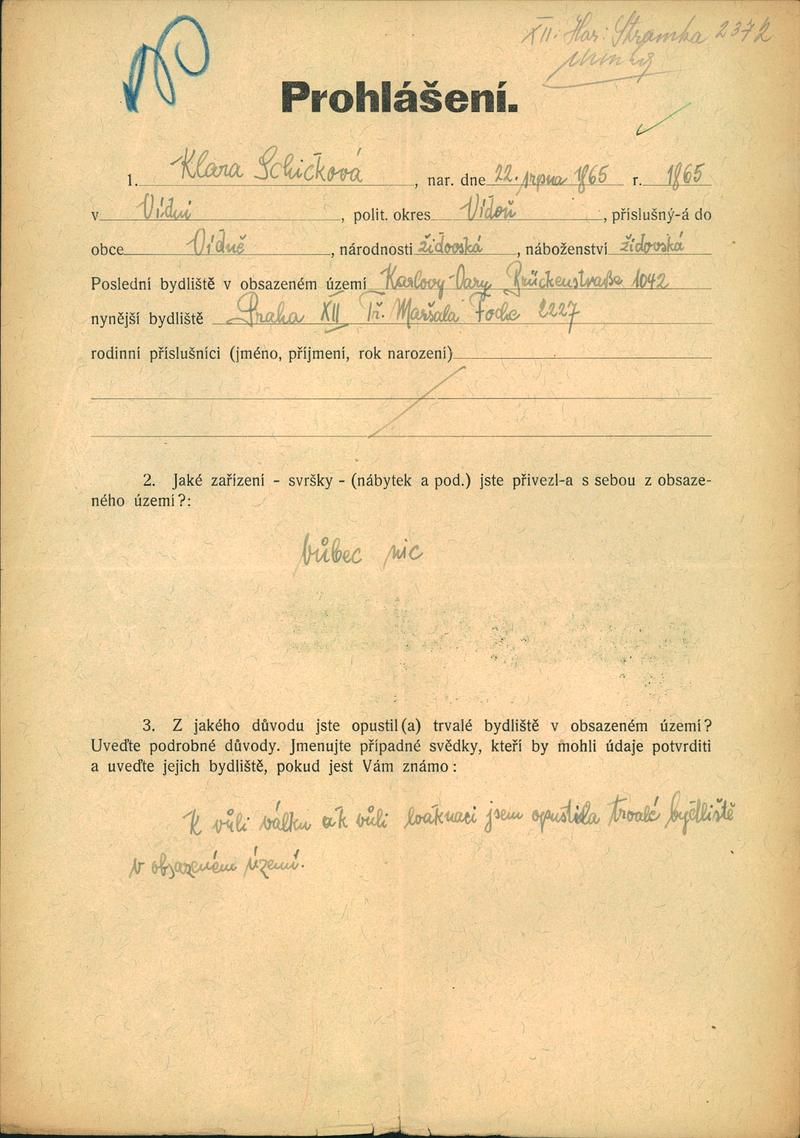 XII. Har: Stramka 2372
Prohlášení.
1. Klara Schičková, nar. dne 22. srpna 1865 r. 1865
v Vídni, polit. okres Vídeň, příslušný-á do
obce Vídně, národnosti židovská, náboženství židovská
Poslední bydliště v obsazeném území Karlovy Vary Brückenstraße 1042
nynější bydliště Praha XII Tř. Maršala Foche 2227
rodinní příslušníci (jméno, příjmení, rok narození)
2. Jaké zařízení - svršky - (nábytek a pod.) jste přivezl-a s sebou z obsaze-
ného území?:
vůbec nic
3. Z jakého důvodu jste opustil(a) trvalé bydliště v obsazeném území?
Uveďte podrobné důvody. Jmenujte případné svědky, kteří by mohli údaje potvrditi
a uveďte jejich bydliště, pokud jest Vám známo:
K vůli válku a k vůli evakuaci jsem opustila trvalé bydliště
v obsazeném území.